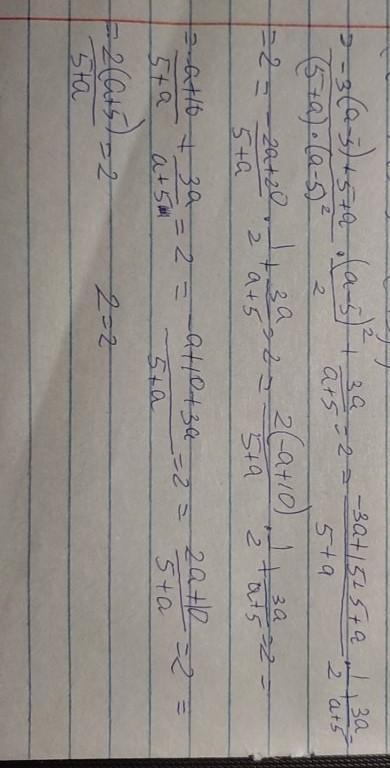 = -3(a-5)+5+a / (5+a)·(a-5)² · (a-5)² / 2 + 3a / a+5 = 2 = -3a+15+5+a / 5+a · 1 / 2 + 3a / a+5 =
= 2 = -2a+20 / 5+a · 1 / 2 + 3a / a+5 = 2 = 2(-a+10) / 5+a · 1 / 2 + 3a / a+5 = 2 =
= -a+10 / 5+a + 3a / a+5 = 2 = -a+10+3a / 5+a = 2 = 2a+10 / 5+a = 2 =
= 2(a+5) / 5+a = 2 2=2